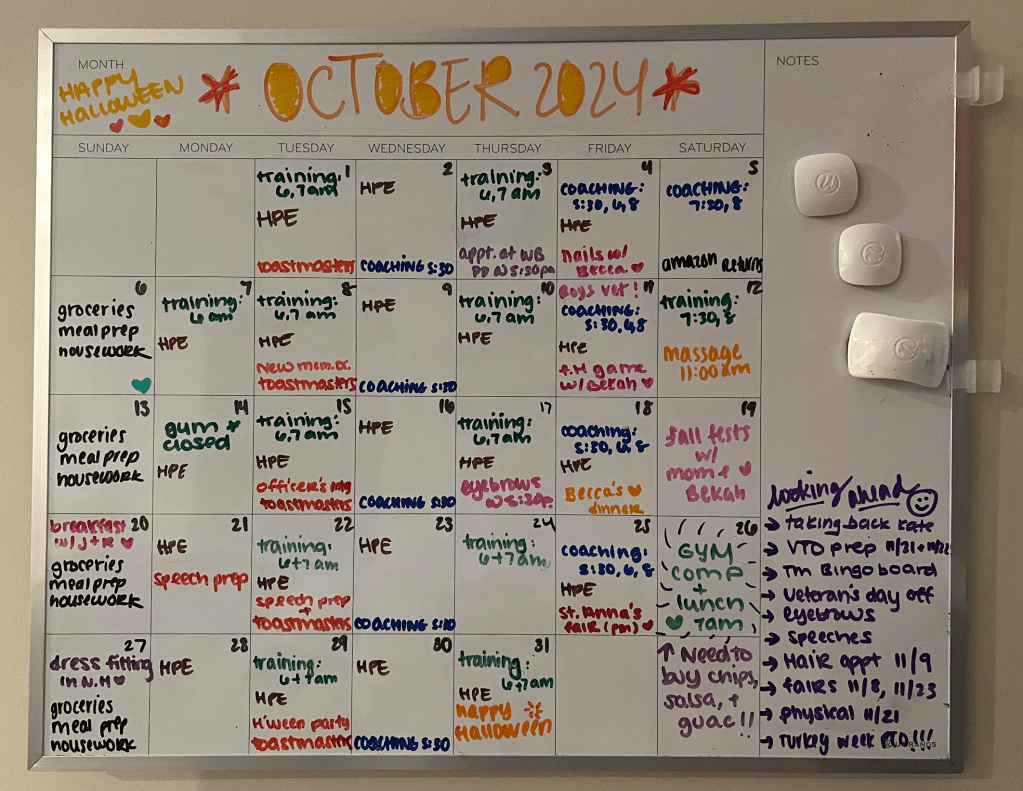 MONTH
HAPPY
HALLOWEEN
OCTOBER 2024
NOTES
SUNDAY MONDAY TUESDAY WEDNESDAY THURSDAY FRIDAY SATURDAY
1
training:
6,7am
HPE
toastmasters
2
HPE
COACHING 5:30
3
training:
6,7am
HPE
appt. at WB
PD @ 5:30pm
4
COACHING:
5:30, 6, 8
HPE
nails w/
Becca
5
COACHING:
7:30, 8
amazon returns
6
groceries
meal prep
housework
7
training:
6am
HPE
8
training:
6,7am
HPE
New mem. or.
toastmasters
9
HPE
COACHING 5:30
10
training:
6,7am
HPE
11
Boys vet!
COACHING:
5:30, 6, 8
HPE
game
w/ Bekah
12
training:
7:30, 8
massage
11:00am
13
groceries
meal prep
housework
14
gym
closed
HPE
15
training:
6,7am
HPE
officer's mtg
toastmasters
16
HPE
COACHING 5:30
17
training:
6,7am
HPE
eyebrows
@ 5:30p.
18
coaching:
5:30, 6, 8
HPE
Becca's
dinner
19
fall fests
w/
mom +
Bekah
20
breakfast
w/ J + R
groceries
meal prep
housework
21
HPE
speech prep
22
training:
6+7am
HPE
speech prep
+
toastmasters
23
HPE
COACHING 5:30
24
training:
6+7am
25
coaching:
5:30, 6, 8
HPE
St. Anna's
fair (pm)
26
GYM
comp
+
lunch
7am
27
dress fitting
in N.H
groceries
meal prep
housework
28
HPE
29
training:
6+7am
HPE
H'ween party
toastmasters
30
HPE
COACHING 5:30
31
training:
6+7am
HPE
happy
Halloween
↑ Need to
buy chips,
salsa, +
guac!!
looking ahead
→ taking back
→ VTO prep 11/21 +
→ Tm Bingo board
→ Veteran's day off
→ eyebrows
→ speeches
→ Hair appt 11/9
→ fairs 11/8, 11/23
→ physical 11/21
→ Turkey week PTO!!!